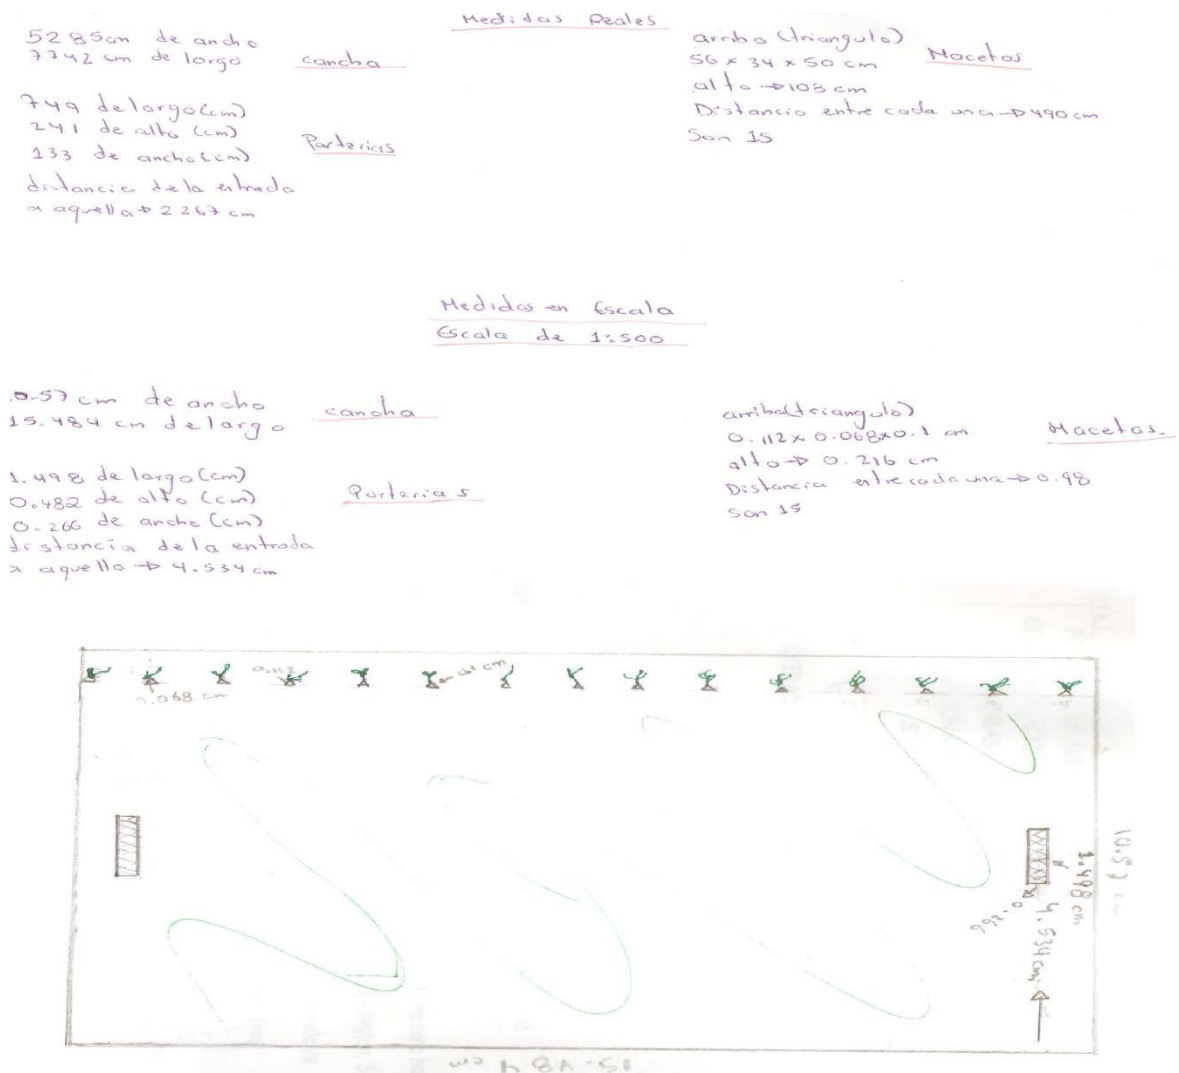 Medidas Reales
5285cm de ancho
7742 cm de largo
cancha
749 de largo (cm)
241 de alto (cm)
133 de ancho (cm)
Porterias
distancia de la entrada
a aquella → 2267 cm
arriba (triangulo)
56 x 34 x 50 cm
alto → 108 cm
Distancia entre cada una → 490 cm
Son 15
Macetas
Medidas en Escala
Escala de 1:500
0.57 cm de ancho
15.484 cm de largo
cancha
1.498 de largo (cm)
0.482 de alto (cm)
0.266 de ancho (cm)
Porterias
distancia de la entrada
a aquella → 4.534 cm
arriba (triangulo)
0.112 x 0.068 x 0.1 cm
alto → 0.216 cm
Distancia entre cada una → 0.98
son 15
Macetas.
0.112
0.1 cm
0.068 cm
10.57 cm
1.498 cm
0.266
4.534 cm
15.484 cm